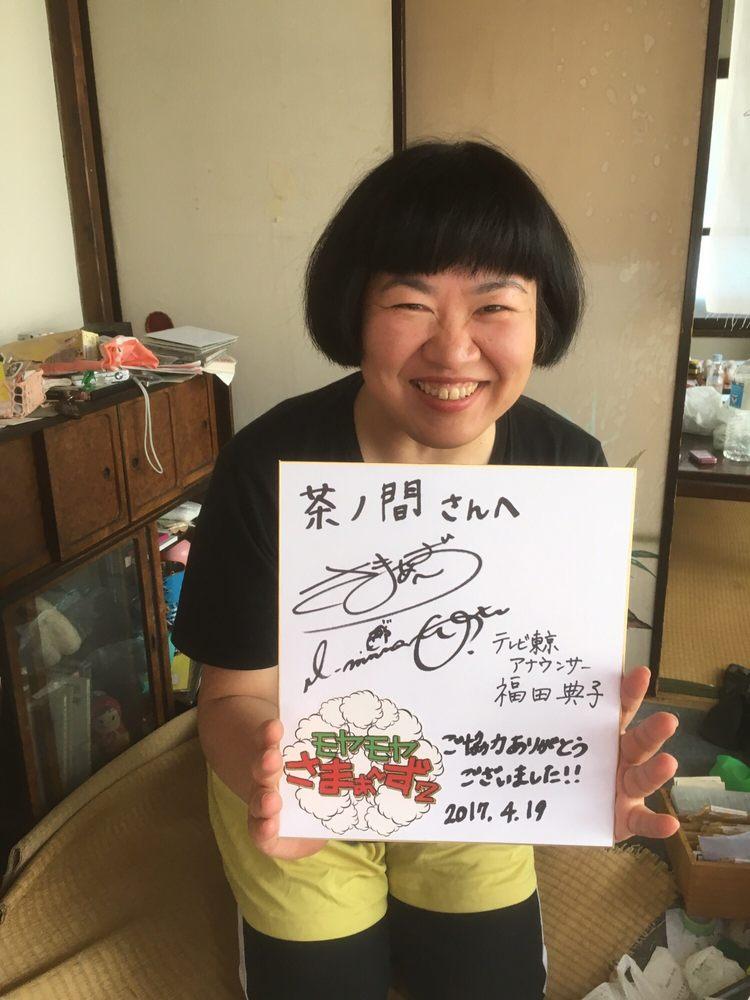 茶ノ間 さんへ
さまぁ〜ず
テレビ東京
アナウンサー
福田典子
モヤモヤ
さまぁ〜ず2
ご協力ありがとう
ございました!!
2017.4.19